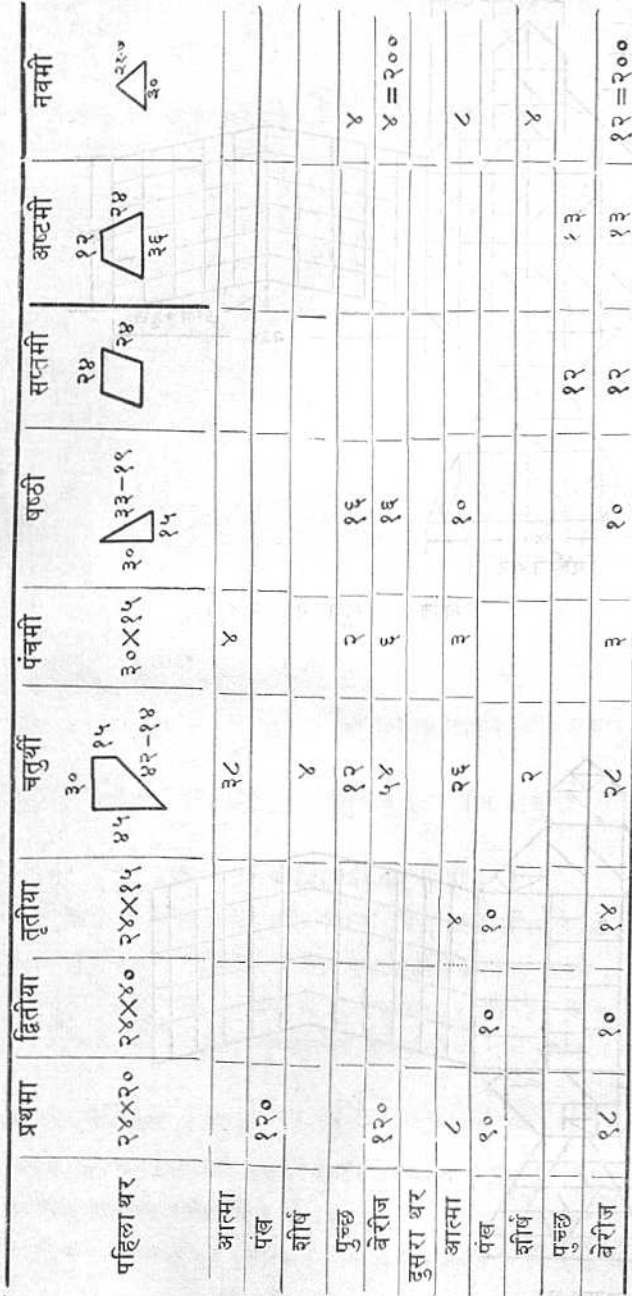 प्रथमा द्वितीया तृतीया चतुर्थी पंचमी षष्ठी सप्तमी अष्टमी नवमी
पहिला थर २४X२० २४X४० २४X१५ ३० १५ ४५ ४२-१४ ३०X१५ ३० ३३-१९ १५ २४ २४ १२ २४ ३६ ३०
आत्मा ३८ ४
पंख १२०
शीर्ष ४
पुच्छ १२ २ १६ ४
बेरीज १२० ५४ ६ १६ ४ = २००
दुसरा थर
आत्मा ८ ४ २६ ३ १० ८
पंख १० १० १०
शीर्ष २ ४
पुच्छ १२
बेरीज १८ १० १४ २८ ३ १० १२ १३ १२ = २००